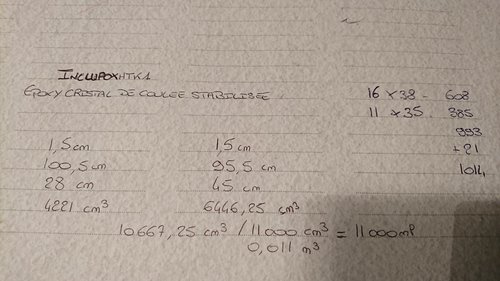 INCLUPOXHTK1
EPOXY CRISTAL DE COULEE STABILISEE
1,5 cm
100,5 cm
28 cm
4221 cm³
1,5 cm
95,5 cm
45 cm
6446,25 cm³
10667,25 cm³ / 11000 cm³ = 11000 ml
0,011 m³
16 x 38 = 608
11 x 35 = 385
993
+ 21
1014